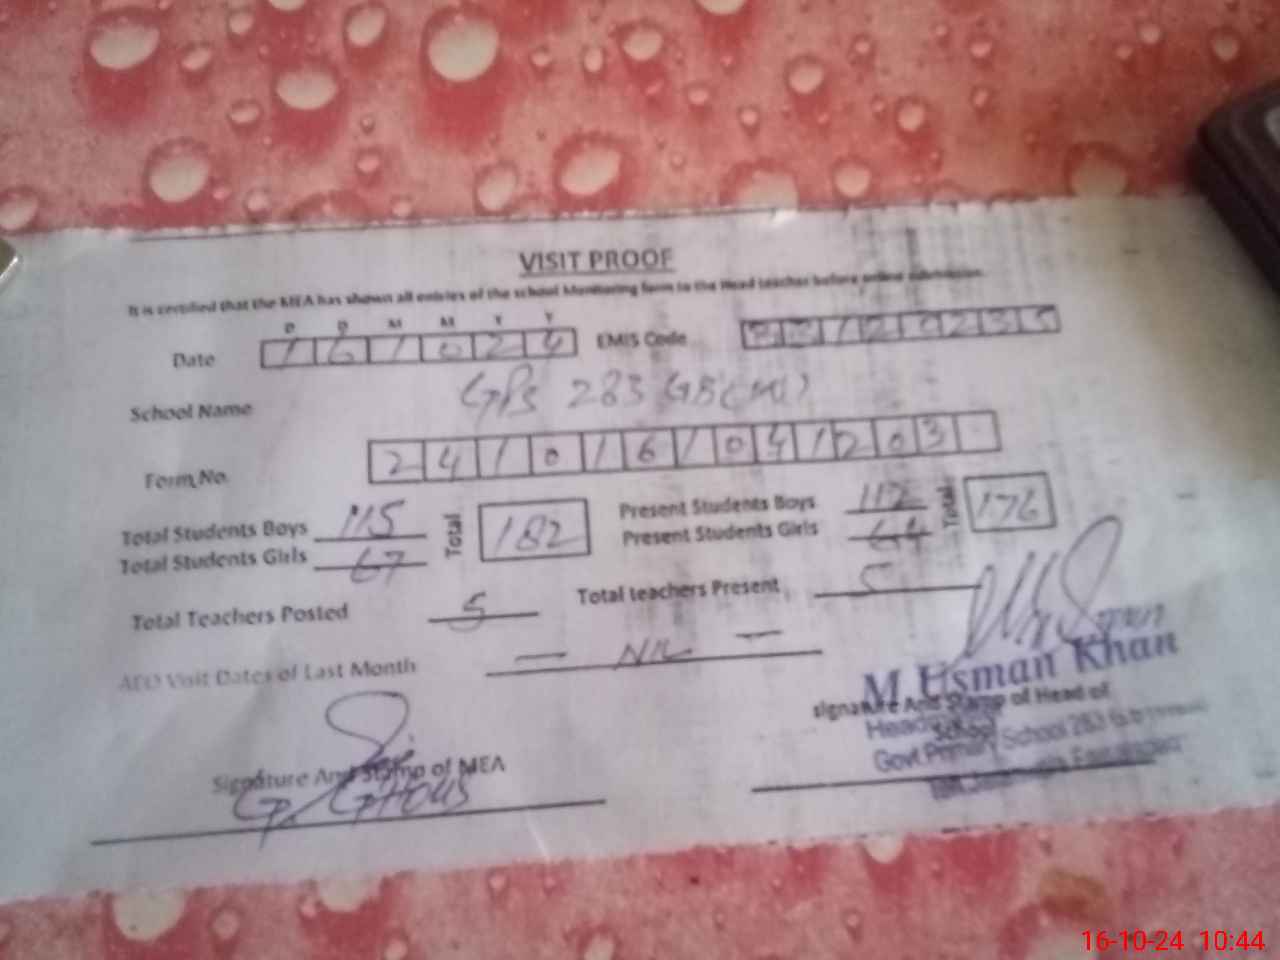 VISIT PROOF
It is certified that the MEA has shown all entries of the school Monitoring form to the Head teacher before online submission.
D D M M Y Y
Date 1 6 1 0 2 4 EMIS Code
School Name GPS 283 GB
Form No. 2 4 1 0 1 6 1 0 4 1 2 0 3
Total Students Boys 115 Total 182 Present Students Boys 112 Total 176
Total Students Girls 67 Present Students Girls 64
Total Teachers Posted 5 Total teachers Present 5
AEO Visit Dates of Last Month — NIL —
M. Usman Khan
signature And Stamp of Head of
School
Govt. Primary School 283
Signature And Stamp of MEA
16-10-24 10:44